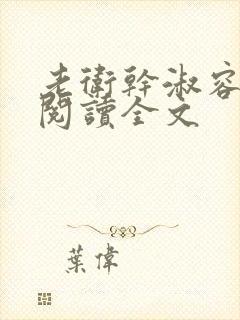 老衛幹淑容
閱讀全文
葉偉